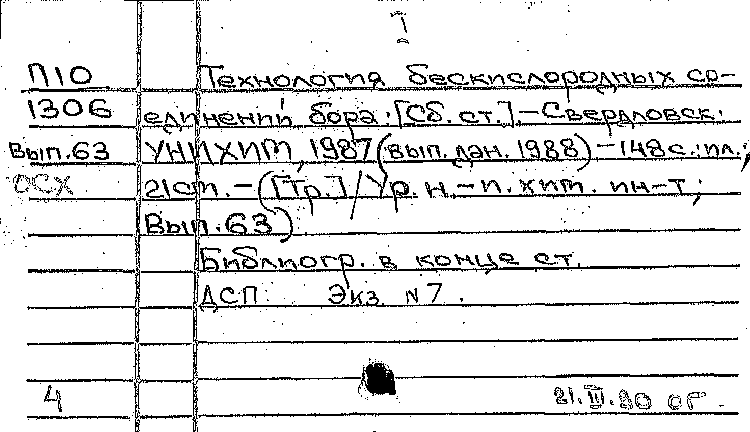 Т
П10 Технология бескислородных со-
1306 единений бора: [Сб. ст.].-Свердловск:
Вып.63 УНИХИМ, 1987 (вып. дан. 1988) - 148 с.: ил.;
ОСХ 21 см. - ([Тр.] / Ур. н.-и. хим. ин-т;
Вып. 63)
Библиогр. в конце ст.
ДСП. Экз. N 7.
4 21.III.90